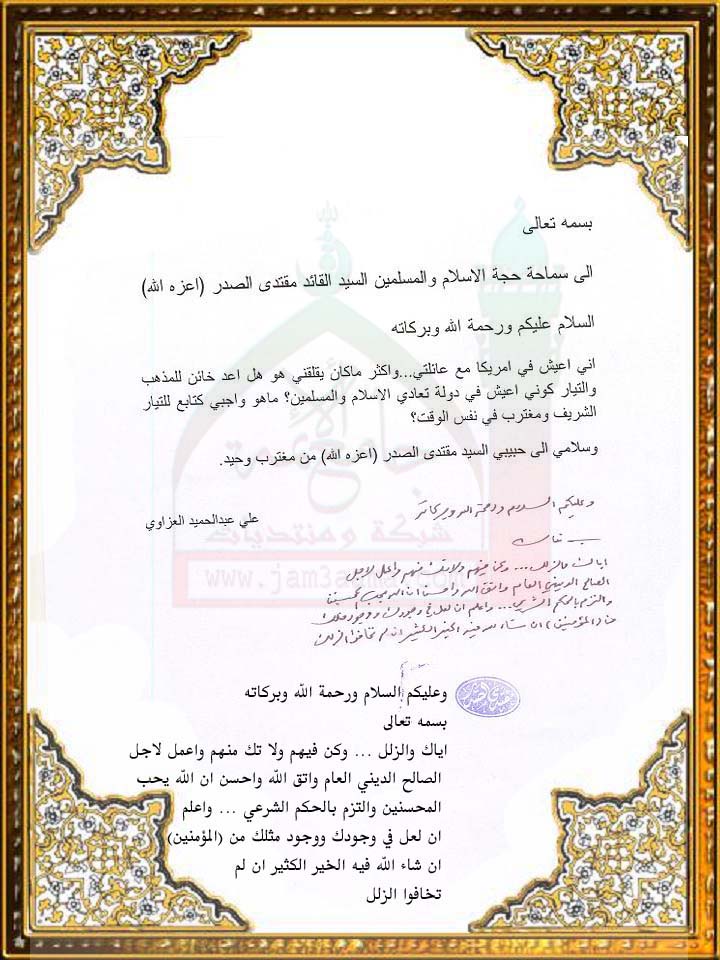 بسمه تعالى
الى سماحة حجة الاسلام والمسلمين السيد القائد مقتدى الصدر (اعزه الله)
السلام عليكم ورحمة الله وبركاته
اني اعيش في امريكا مع عائلتي...واكثر ماكان يقلقني هو هل اعد خائن للمذهب
والتيار كوني اعيش في دولة تعادي الاسلام والمسلمين؟ ماهو واجبي كتابع للتيار
الشريف ومغترب في نفس الوقت؟
وسلامي الى حبيبي السيد مقتدى الصدر (اعزه الله) من مغترب وحيد.
علي عبدالحميد العزاوي
وعليكم السلام ورحمة الله وبركاته
بسمه تعالى
اياك والزلل ... وكن فيهم ولا تك منهم واعمل لاجل
الصالح الديني العام واتق الله واحسن ان الله يحب المحسنين
والتزم بالحكم الشرعي ... واعلم ان لعل في وجودك ووجود مثلك
من (المؤمنين) ان شاء الله فيه الخير الكثير ان لم تخافوا الزلل
شبكة ومنتديات
جامع الأئمة
www.jam3aama.com
وعليكم السلام ورحمة الله وبركاته
بسمه تعالى
اياك والزلل ... وكن فيهم ولا تك منهم واعمل لاجل
الصالح الديني العام واتق الله واحسن ان الله يحب
المحسنين والتزم بالحكم الشرعي ... واعلم
ان لعل في وجودك ووجود مثلك من (المؤمنين)
ان شاء الله فيه الخير الكثير ان لم
تخافوا الزلل